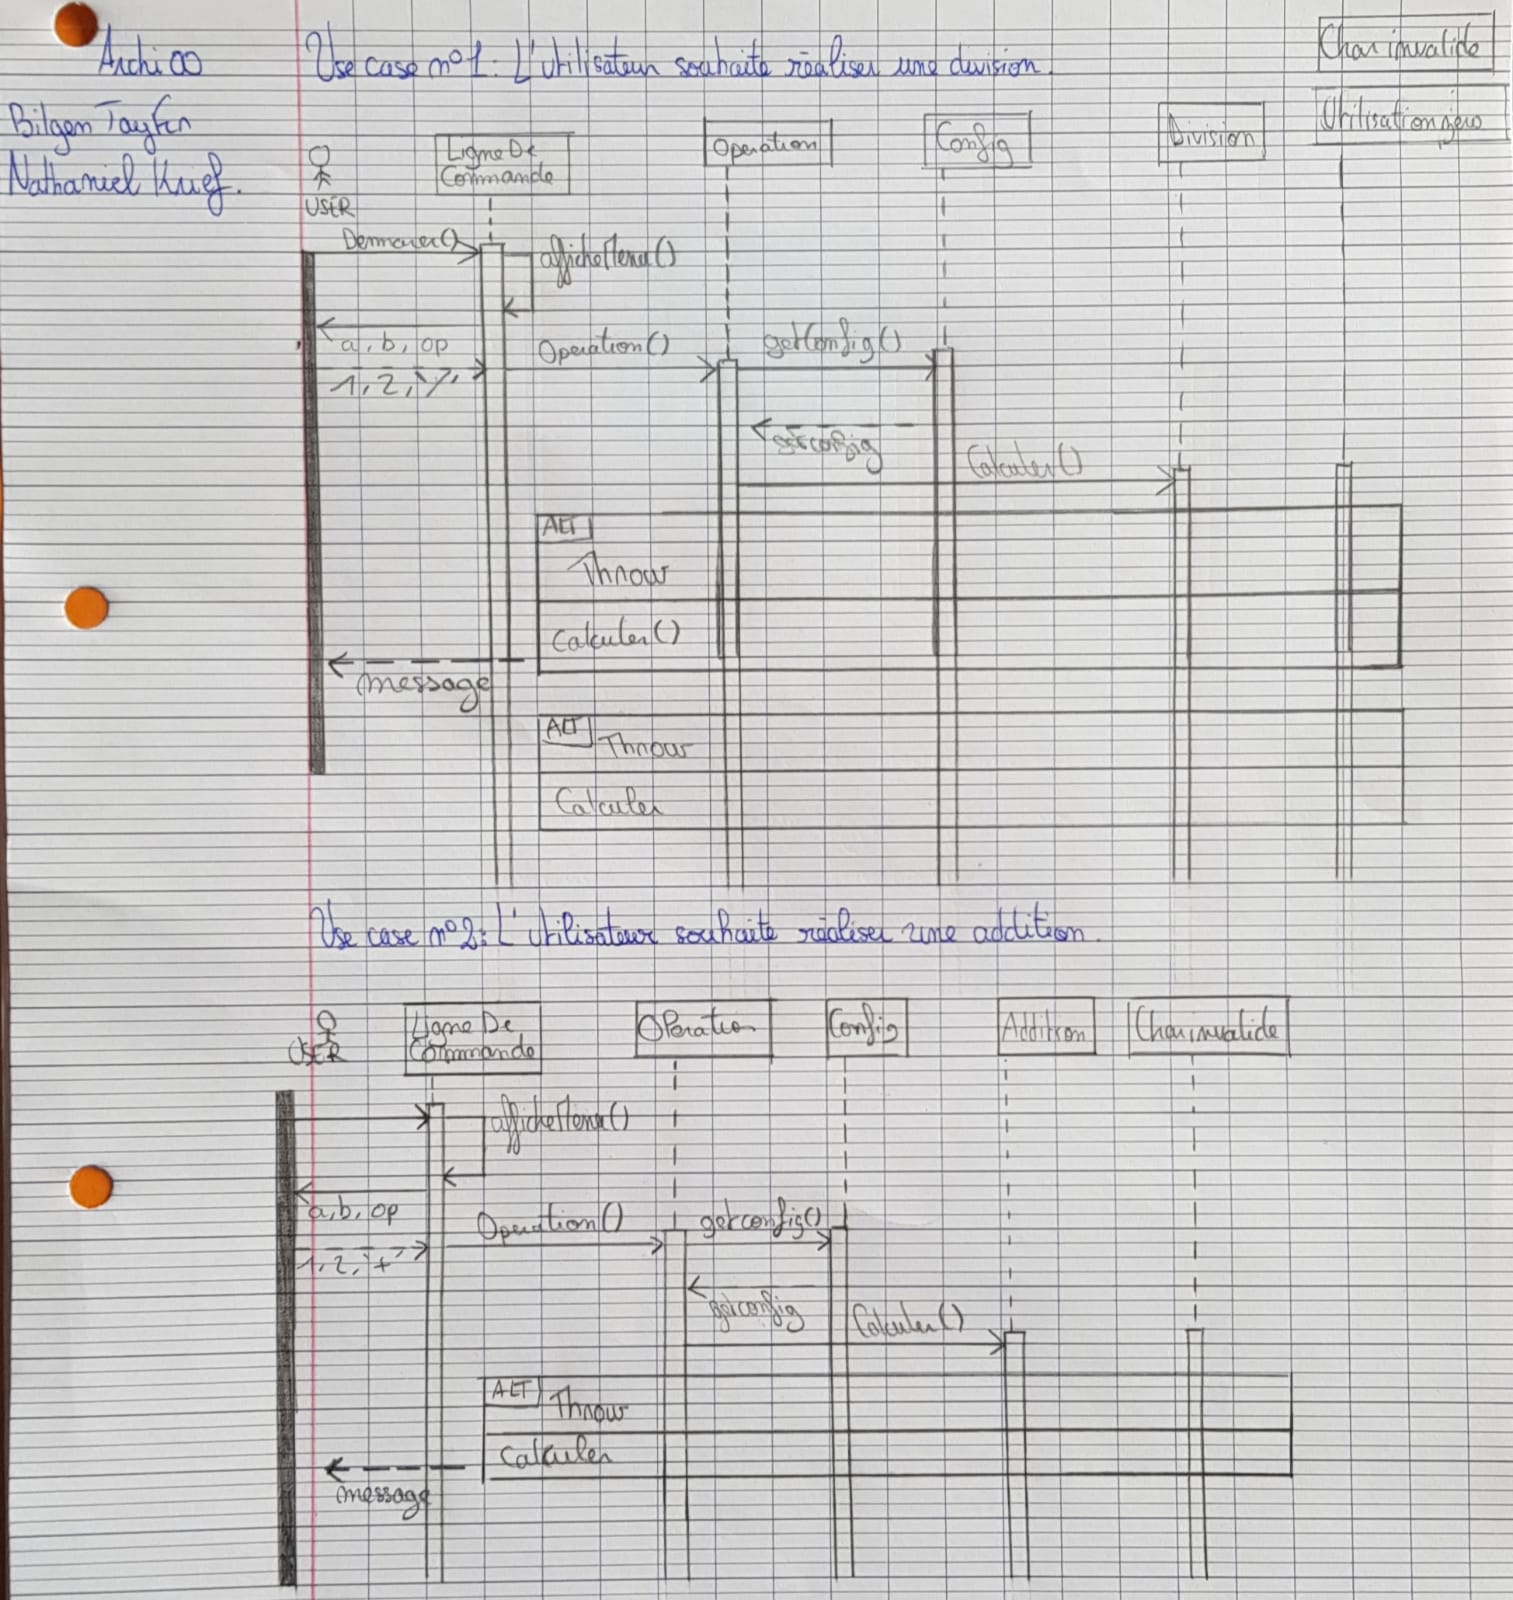 Archi OO
Use case n°1: L'utilisateur souhaite réaliser une division.
Bilgen Tayfun
Nathaniel Krief.
USER
Ligne De
Commande
Operation
Config
Division
Char invalide
Demarrer()
afficheMenu()
a, b, op
1, 2, '/'
Operation()
getConfig()
getconfig
Calculer()
ALT
Throw
Calculer()
message
ALT
Throw
Calculer
Use case n°2: L'utilisateur souhaite réaliser une addition.
USER
Ligne De
Commande
Operation
Config
Addition
Char invalide
afficheMenu()
a, b, op
1, 2, '+'
Operation()
getconfig()
getconfig
Calculer()
ALT
Throw
Calculer
message